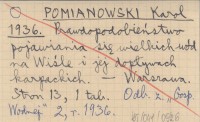 O POMIANOWSKI Karol
1936. Prawdopodobieństwo
pojawiania się wielkich wód
na Wiśle i jej dopływach
karpackich. Warszawa.
Stron 13, 1 tabl.
Odb. z „Gosp.
Wodnej" 2, r. 1936.